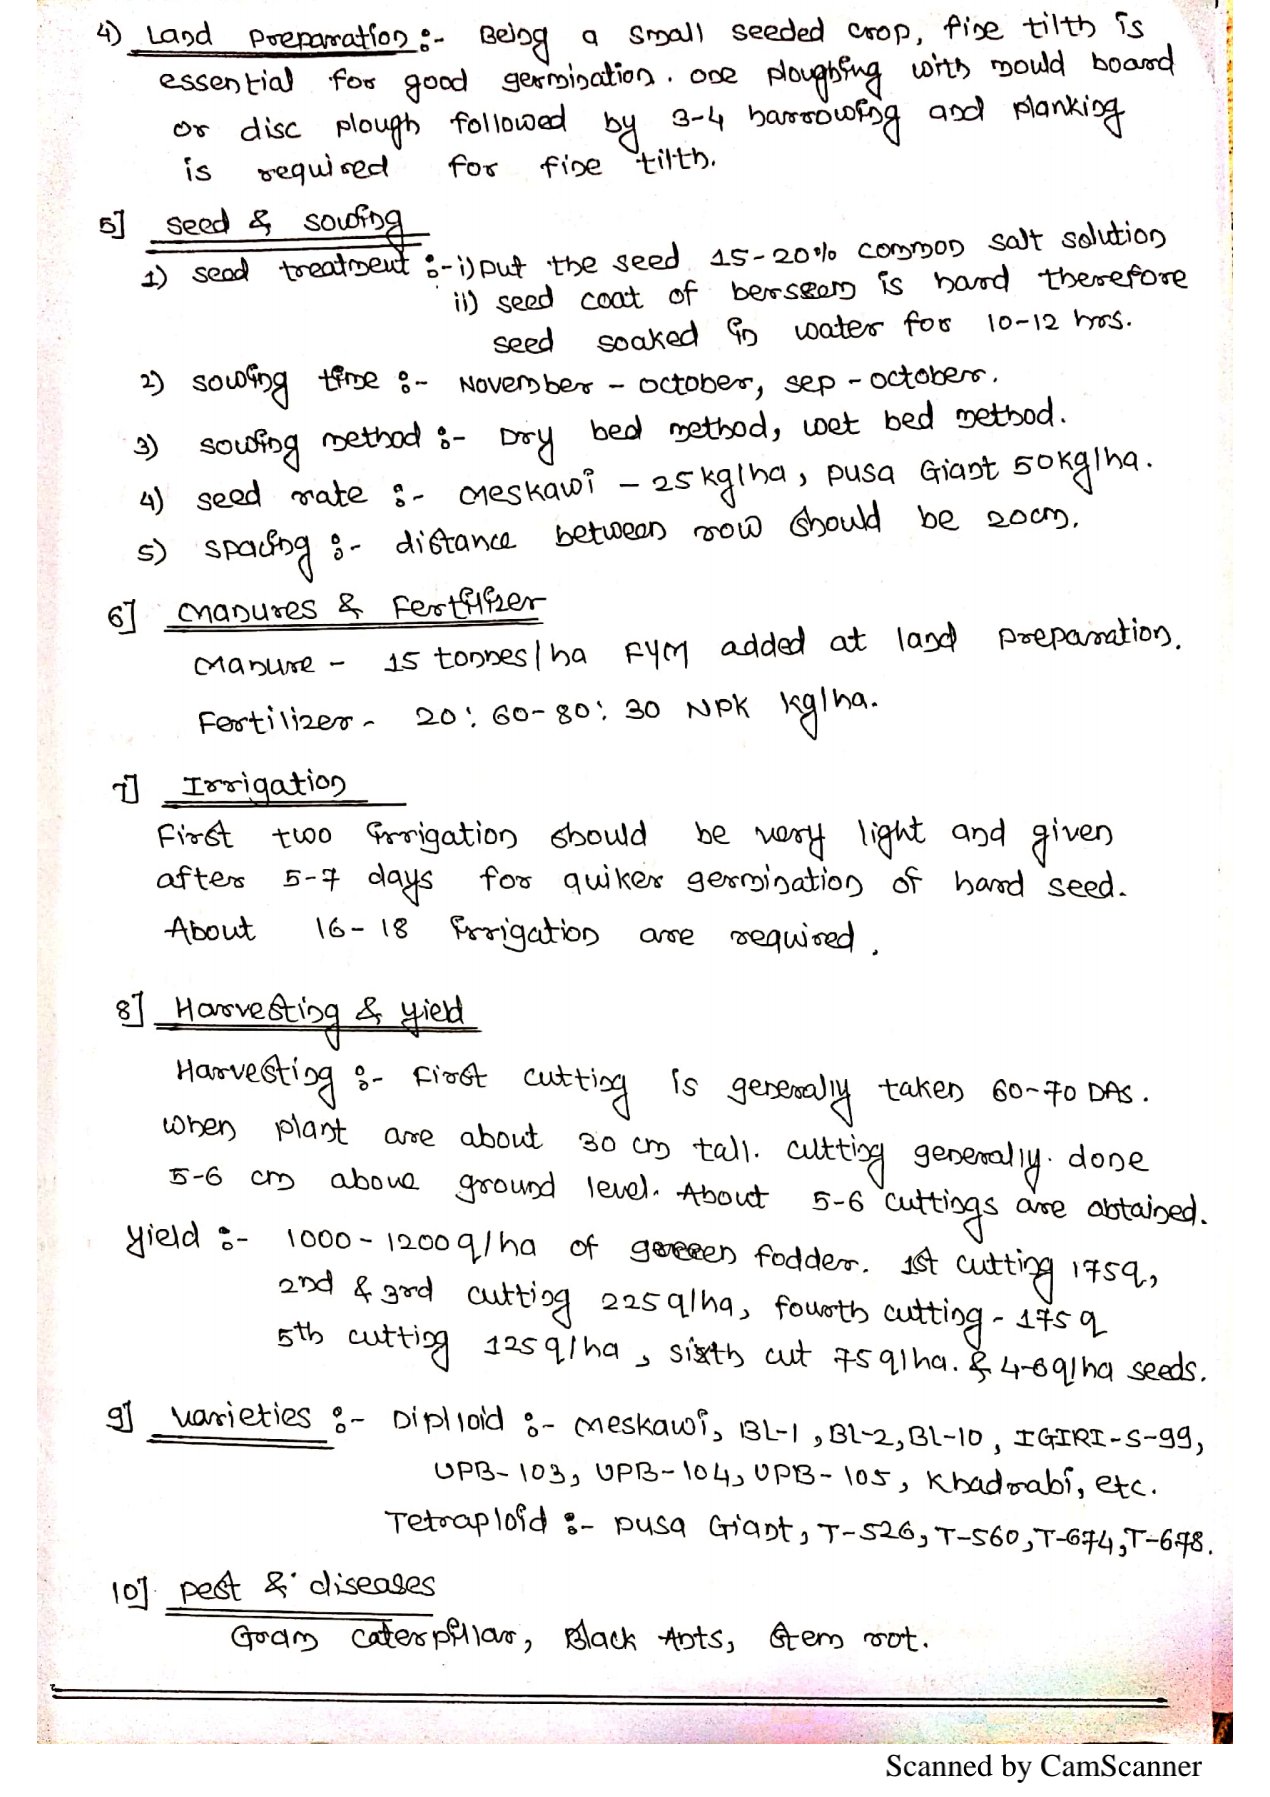 4) Land Preparation :- Being a small seeded crop, fine tilth is
essential for good germination. one ploughing with mould board
or disc plough followed by 3-4 harrowing and planking
is required for fine tilth.
5] seed & sowing
1) seed treatment :- i) put the seed 15-20% common salt solution
ii) seed coat of berseem is hard therefore
seed soaked in water for 10-12 hrs.
2) sowing time :- November - october, sep - october.
3) sowing method :- Dry bed method, wet bed method.
4) seed rate :- Meskawi - 25 kg/ha, pusa Giant 50kg/ha.
5) spacing :- distance between row should be 20cm.
6] Manures & Fertilizer
Manure - 15 tonnes/ha FYM added at land preparation.
Fertilizer - 20: 60-80: 30 NPK kg/ha.
7] Irrigation
First two irrigation should be very light and given
after 5-7 days for quiker germination of hard seed.
About 16-18 irrigation are required.
8] Harvesting & yield
Harvesting :- First cutting is generally taken 60-70 DAS.
when plant are about 30 cm tall. cutting generally. done
5-6 cm above ground level. About 5-6 cuttings are obtained.
Yield :- 1000-1200q/ha of green fodder. 1st cutting 175q,
2nd & 3rd cutting 225q/ha, fourth cutting - 175 q
5th cutting 125q/ha, sixth cut 75q/ha. & 4-6q/ha seeds.
9] varieties :- Diploid :- Meskawi, BL-1, BL-2, BL-10, IGIRI-S-99,
UPB-103, UPB-104, UPB-105, Khadrabi, etc.
Tetraploid :- pusa Giant, T-526, T-560, T-674, T-678.
10] pest & diseases
Gram caterpillar, Black Ants, stem rot.
Scanned by CamScanner